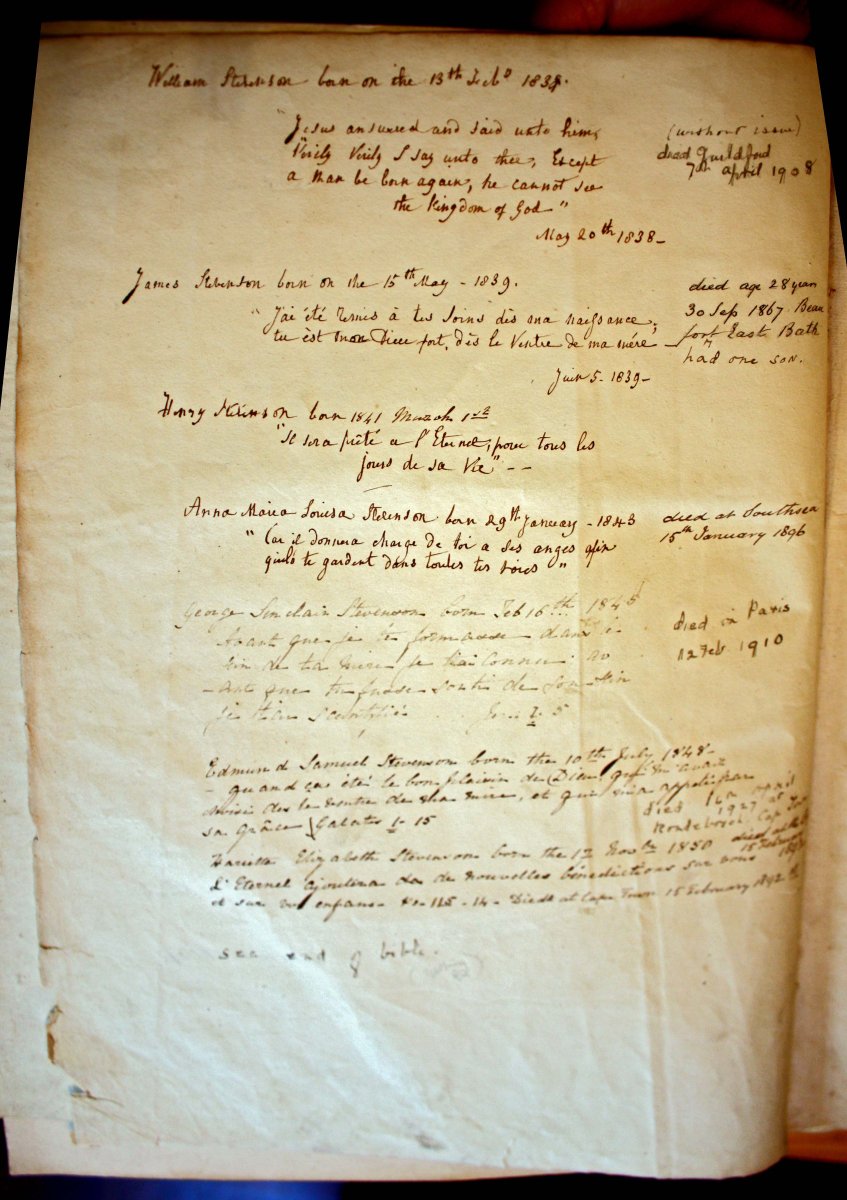 William Stevenson born on the 13th Feb. 1838.
"Jesus answered and said unto him,
Verily Verily I say unto thee, Except
a Man be born again, he cannot see
the Kingdom of God"
May 20th 1838 -
(without issue)
died Guildford
7th april 1908
James Stevenson born on the 15th May - 1839.
"J'ai été remis à tes soins dès ma naissance,
tu est mon Dieu fort, dès le Ventre de ma mère -
Juin 5 - 1839 -
died age 28 years
30 Sep 1867. Beau
fort East Bath
had one son.
Henry Stevenson born 1841 March 1st
"Il sera prêté a l'Eternel, pour tous les
jours de sa Vie" - -
Anna Maria Louisa Stevenson born 29th January - 1843
"Car il donnera charge de toi a ses anges afin
qu'ils te gardent dans toutes tes voies"
died at Southsea
15th January 1896
George Sinclair Stevenson born Feb 16th 1845
Avant que je te formasse dans le
sein de ta mère je t'ai connu: av
-ant que tu fusse sorti de son sein
je t'ai
died in Paris
12 Feb 1910
Edmund Samuel Stevenson born the 10th July 1848 -
- quand ça été le bon plaisir de Dieu qui m'avait
choisi des le ventre de ma mère, et qui m'a appelé par
sa Grâce Galates 1 - 15
died 16 april
1927 at
Rondebosch Cap
Harietta Elizabeth Stevenson born the 12 Nov 1850
L'Eternel ajoutera de nouvelles bénédictions sur vous
et sur vos enfans - Ps - 115 - 14 - Died at Cape Town 15 February 1892
died
15 February
see end of bible.